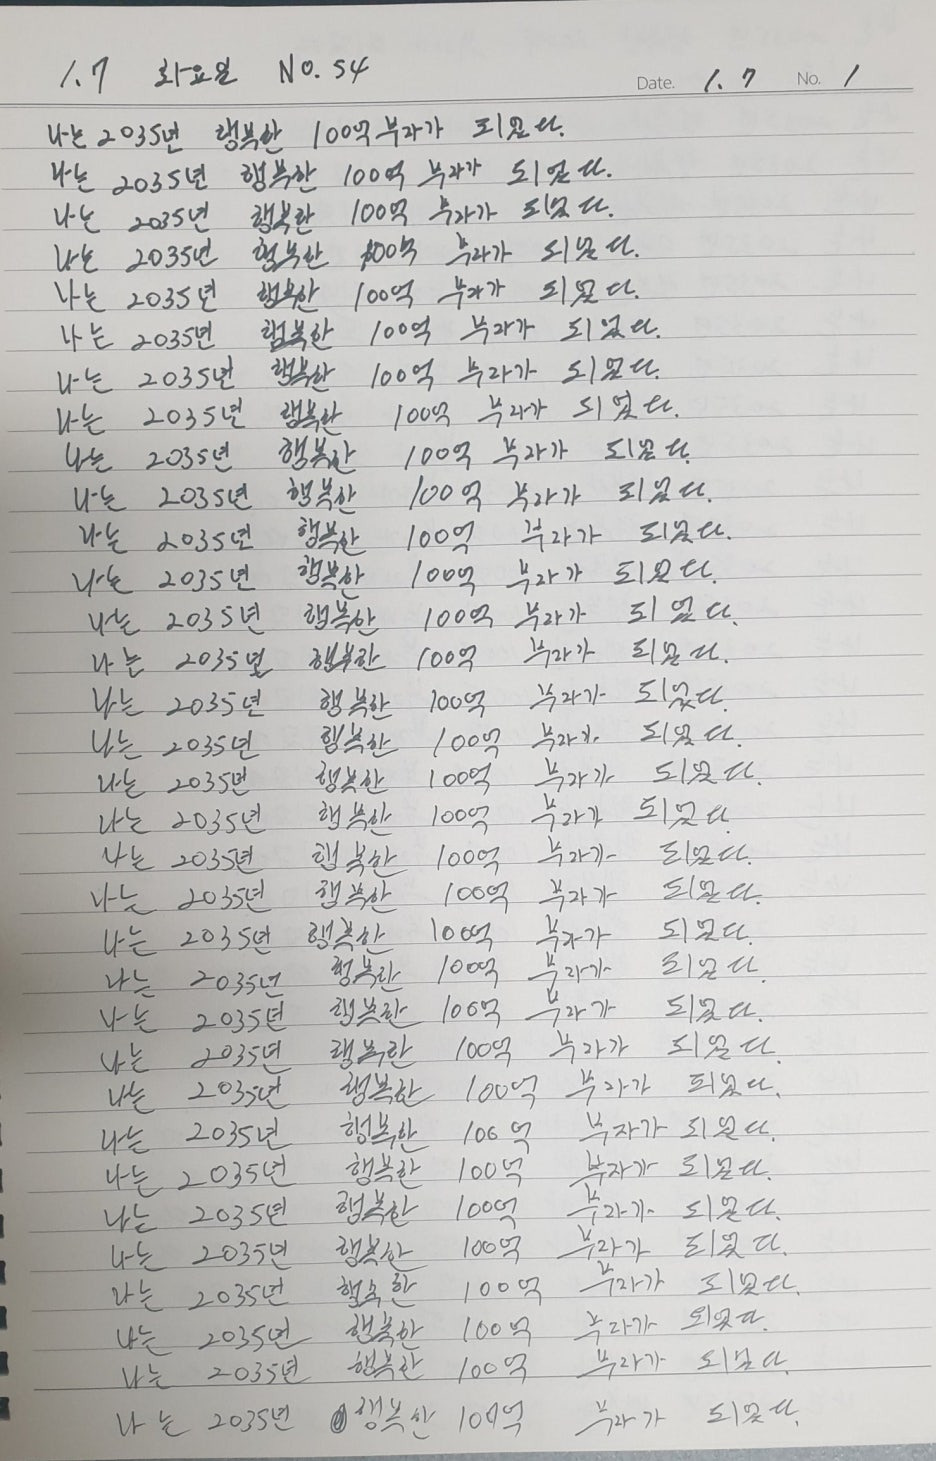 1.7 화요일 No.54
Date. 1.7 No. 1
나는 2035년 행복한 100억 부자가 되었다.
나는 2035년 행복한 100억 부자가 되었다.
나는 2035년 행복한 100억 부자가 되었다.
나는 2035년 행복한 100억 부자가 되었다.
나는 2035년 행복한 100억 부자가 되었다.
나는 2035년 행복한 100억 부자가 되었다.
나는 2035년 행복한 100억 부자가 되었다.
나는 2035년 행복한 100억 부자가 되었다.
나는 2035년 행복한 100억 부자가 되었다.
나는 2035년 행복한 100억 부자가 되었다.
나는 2035년 행복한 100억 부자가 되었다.
나는 2035년 행복한 100억 부자가 되었다.
나는 2035년 행복한 100억 부자가 되었다.
나는 2035년 행복한 100억 부자가 되었다.
나는 2035년 행복한 100억 부자가 되었다.
나는 2035년 행복한 100억 부자가 되었다.
나는 2035년 행복한 100억 부자가 되었다.
나는 2035년 행복한 100억 부자가 되었다.
나는 2035년 행복한 100억 부자가 되었다.
나는 2035년 행복한 100억 부자가 되었다.
나는 2035년 행복한 100억 부자가 되었다.
나는 2035년 행복한 100억 부자가 되었다.
나는 2035년 행복한 100억 부자가 되었다.
나는 2035년 행복한 100억 부자가 되었다.
나는 2035년 행복한 100억 부자가 되었다.
나는 2035년 행복한 100억 부자가 되었다.
나는 2035년 행복한 100억 부자가 되었다.
나는 2035년 행복한 100억 부자가 되었다.
나는 2035년 행복한 100억 부자가 되었다.
나는 2035년 행복한 100억 부자가 되었다.
나는 2035년 행복한 100억 부자가 되었다.
나는 2035년 행복한 100억 부자가 되었다.
나는 2035년 행복한 100억 부자가 되었다.